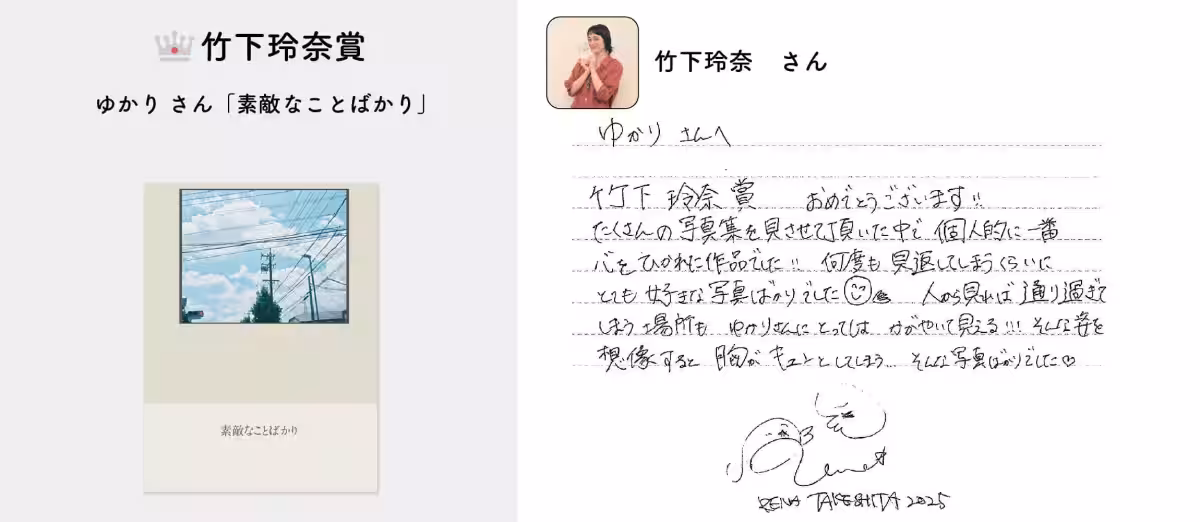 竹下玲奈賞
ゆかり さん「素敵なことばかり」
素敵なことばかり
竹下玲奈 さん
ゆかり さんへ
竹下 玲奈 賞 おめでとうございます!!
たくさんの写真集を見させて頂いた中で 個人的に一番
心をひかれた作品でした!! 何度も見返してしまうくらいに
とても好きな写真ばかりでした 人から見れば通り過ぎて
しまう場所も ゆかりさんにとっては かがやいて見える!!! そんな姿を
想像すると 胸がキュンとしてしまう... そんな写真ばかりでした♡
RENA TAKESHITA 2025